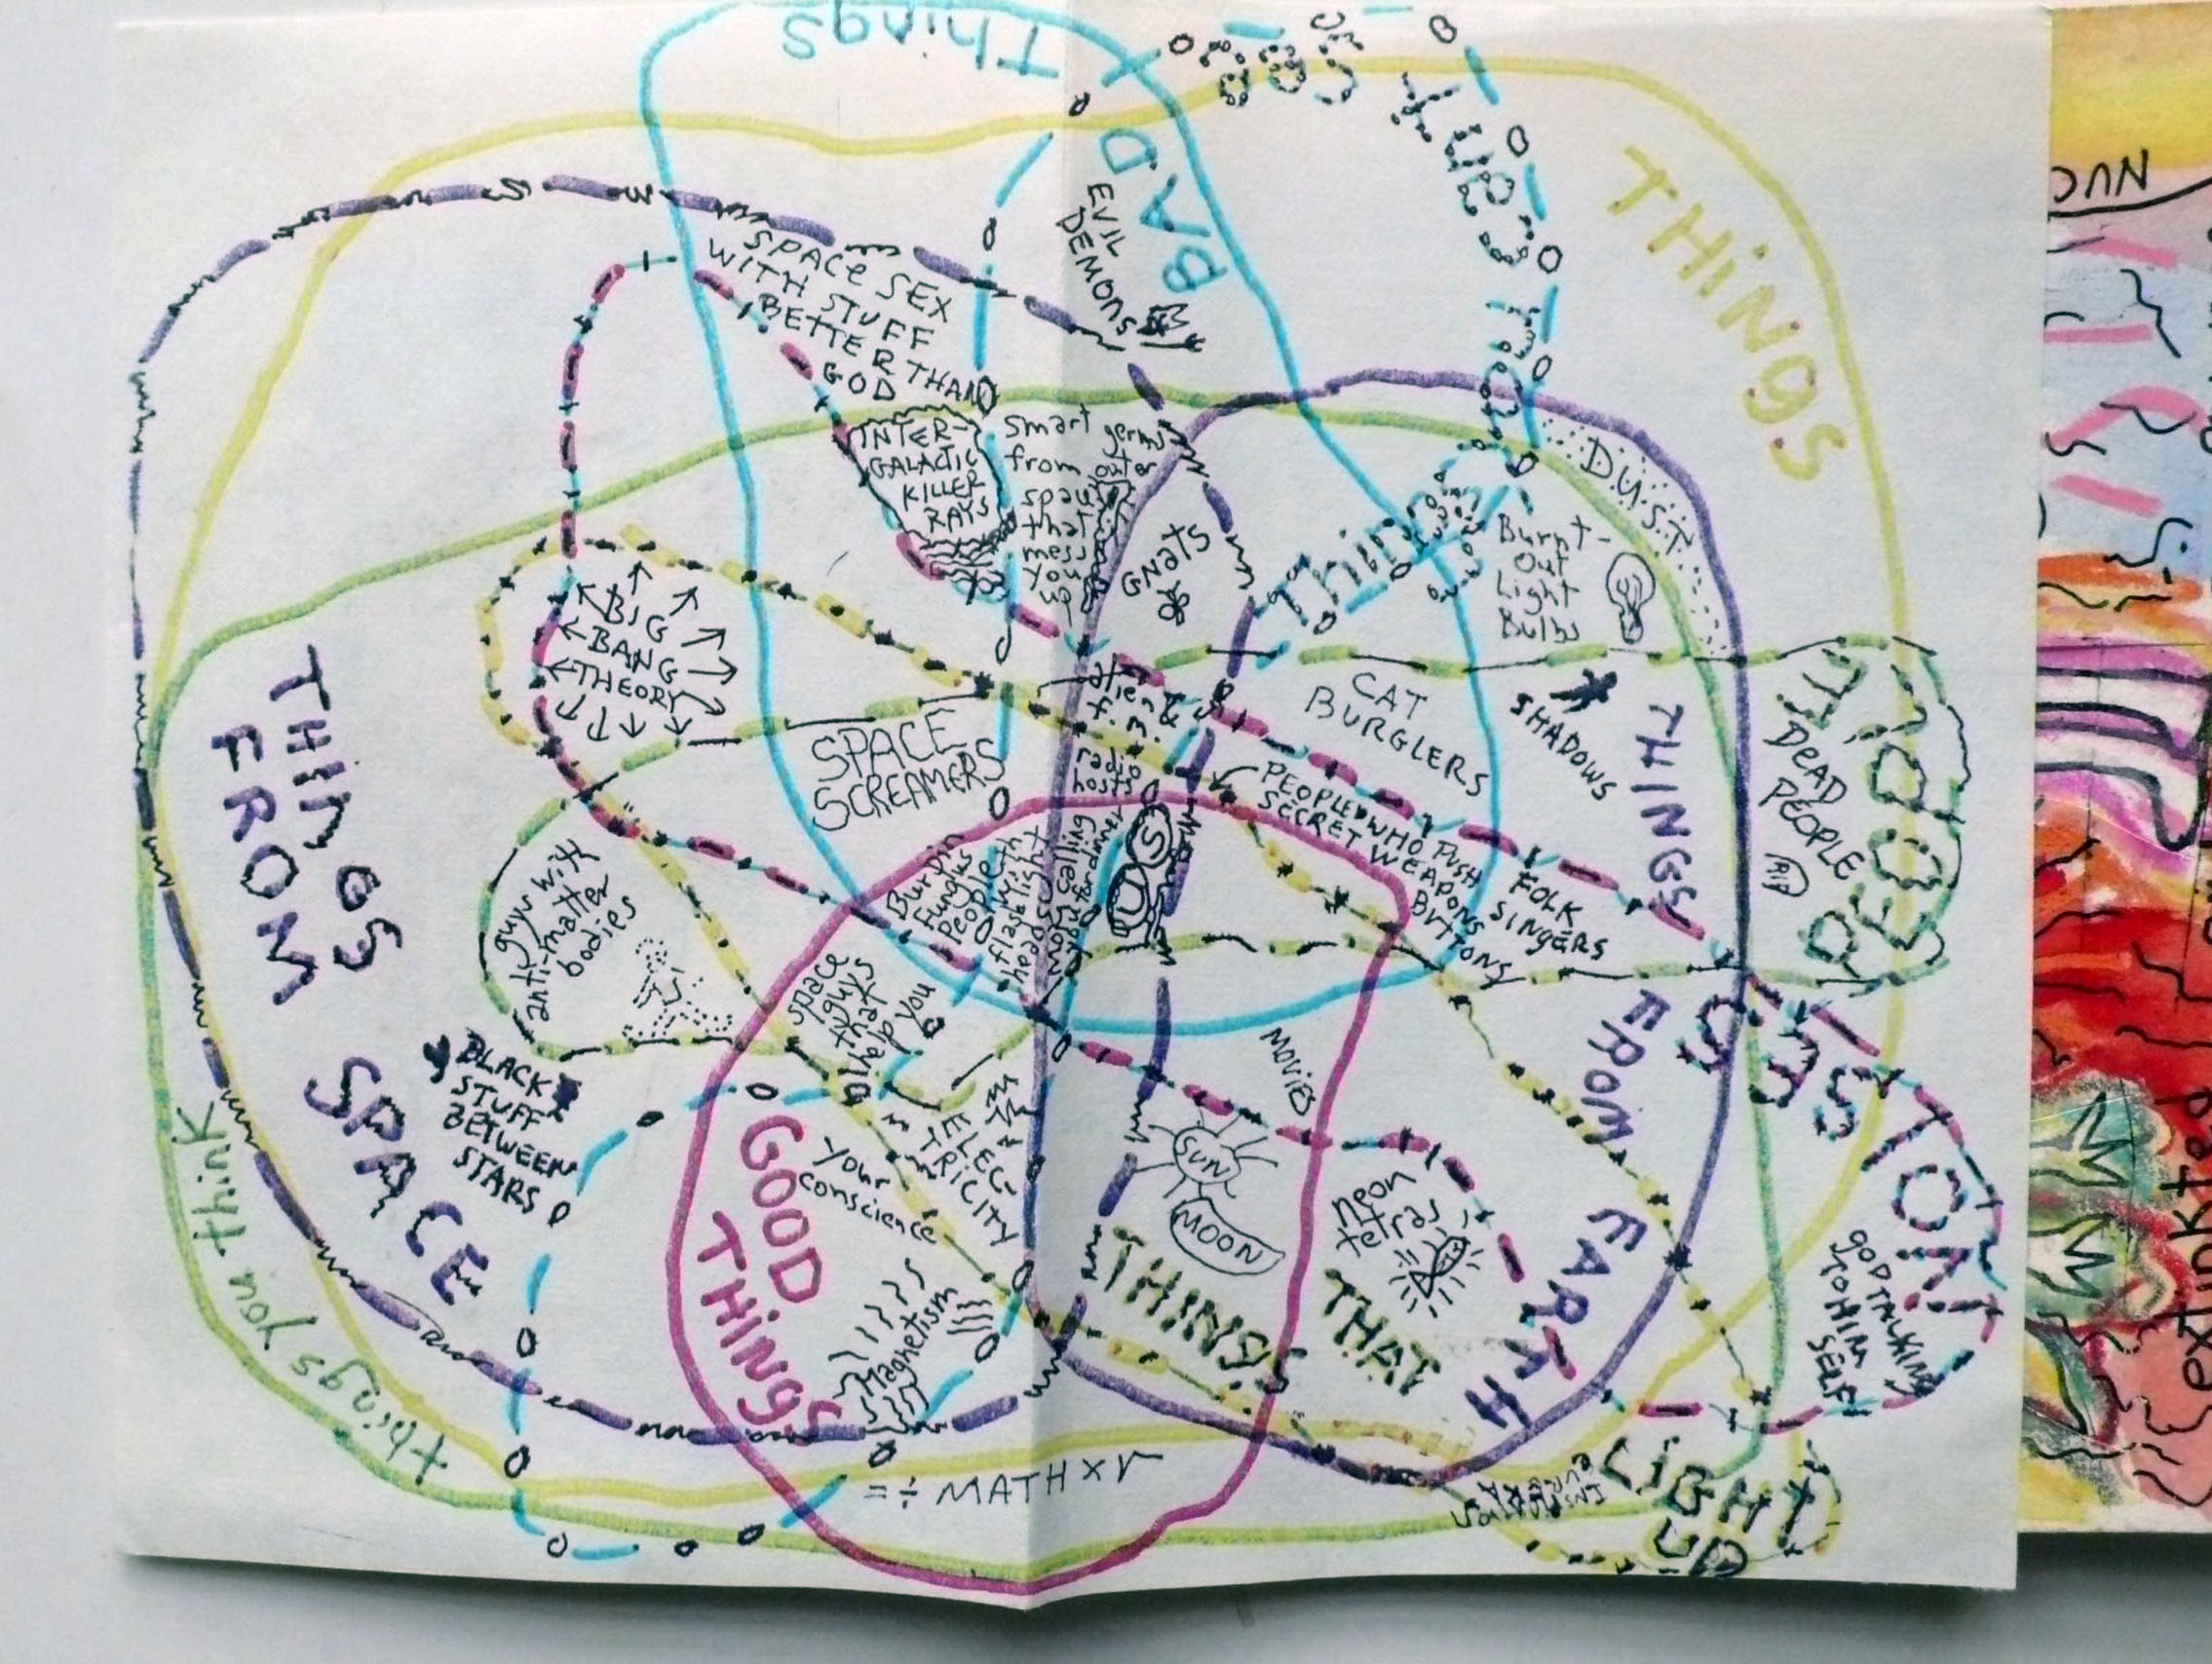 Things
BAD
THiNGS
THAT
EVIL
DEMONS
SPACE SEX
WITH STUFF
BETTER THAN
GOD
INTER-
GALACTIC
KILLER
RAYS
smart germs
from outer
that
mess
you
up
GNATS
DUST
Burnt-
Out
Light
Bulbs
BIG
BANG
THEORY
CAT
BURGLERS
SHADOWS
THINGS
FROM
EARTH
DeAD
PEOPLE
RIP
PEOPLE
SPACE
SCREAMERS
radio
hosts
PEOPLE WHO PUSH
SECRET WEAPONS
BUTTONS
FOLK
SINGERS
THINGS
FROM
SPACE
guys with
anti-matter
bodies
people with
flashlight
heads
mom calling
you for dinner
US
space
guys
that
help you
BLACK
STUFF
BETWEEN
STARS
MOVIES
ELEC-
TRICITY
your
conscience
SUN
MOON
neon
tetras
GOOD
THiNGS
Magnetism
THINGS
THAT
GOD TALKING
TO HIM
SELF
things you think
= ÷ MATH × √
LIGHT
NUC
extinkted